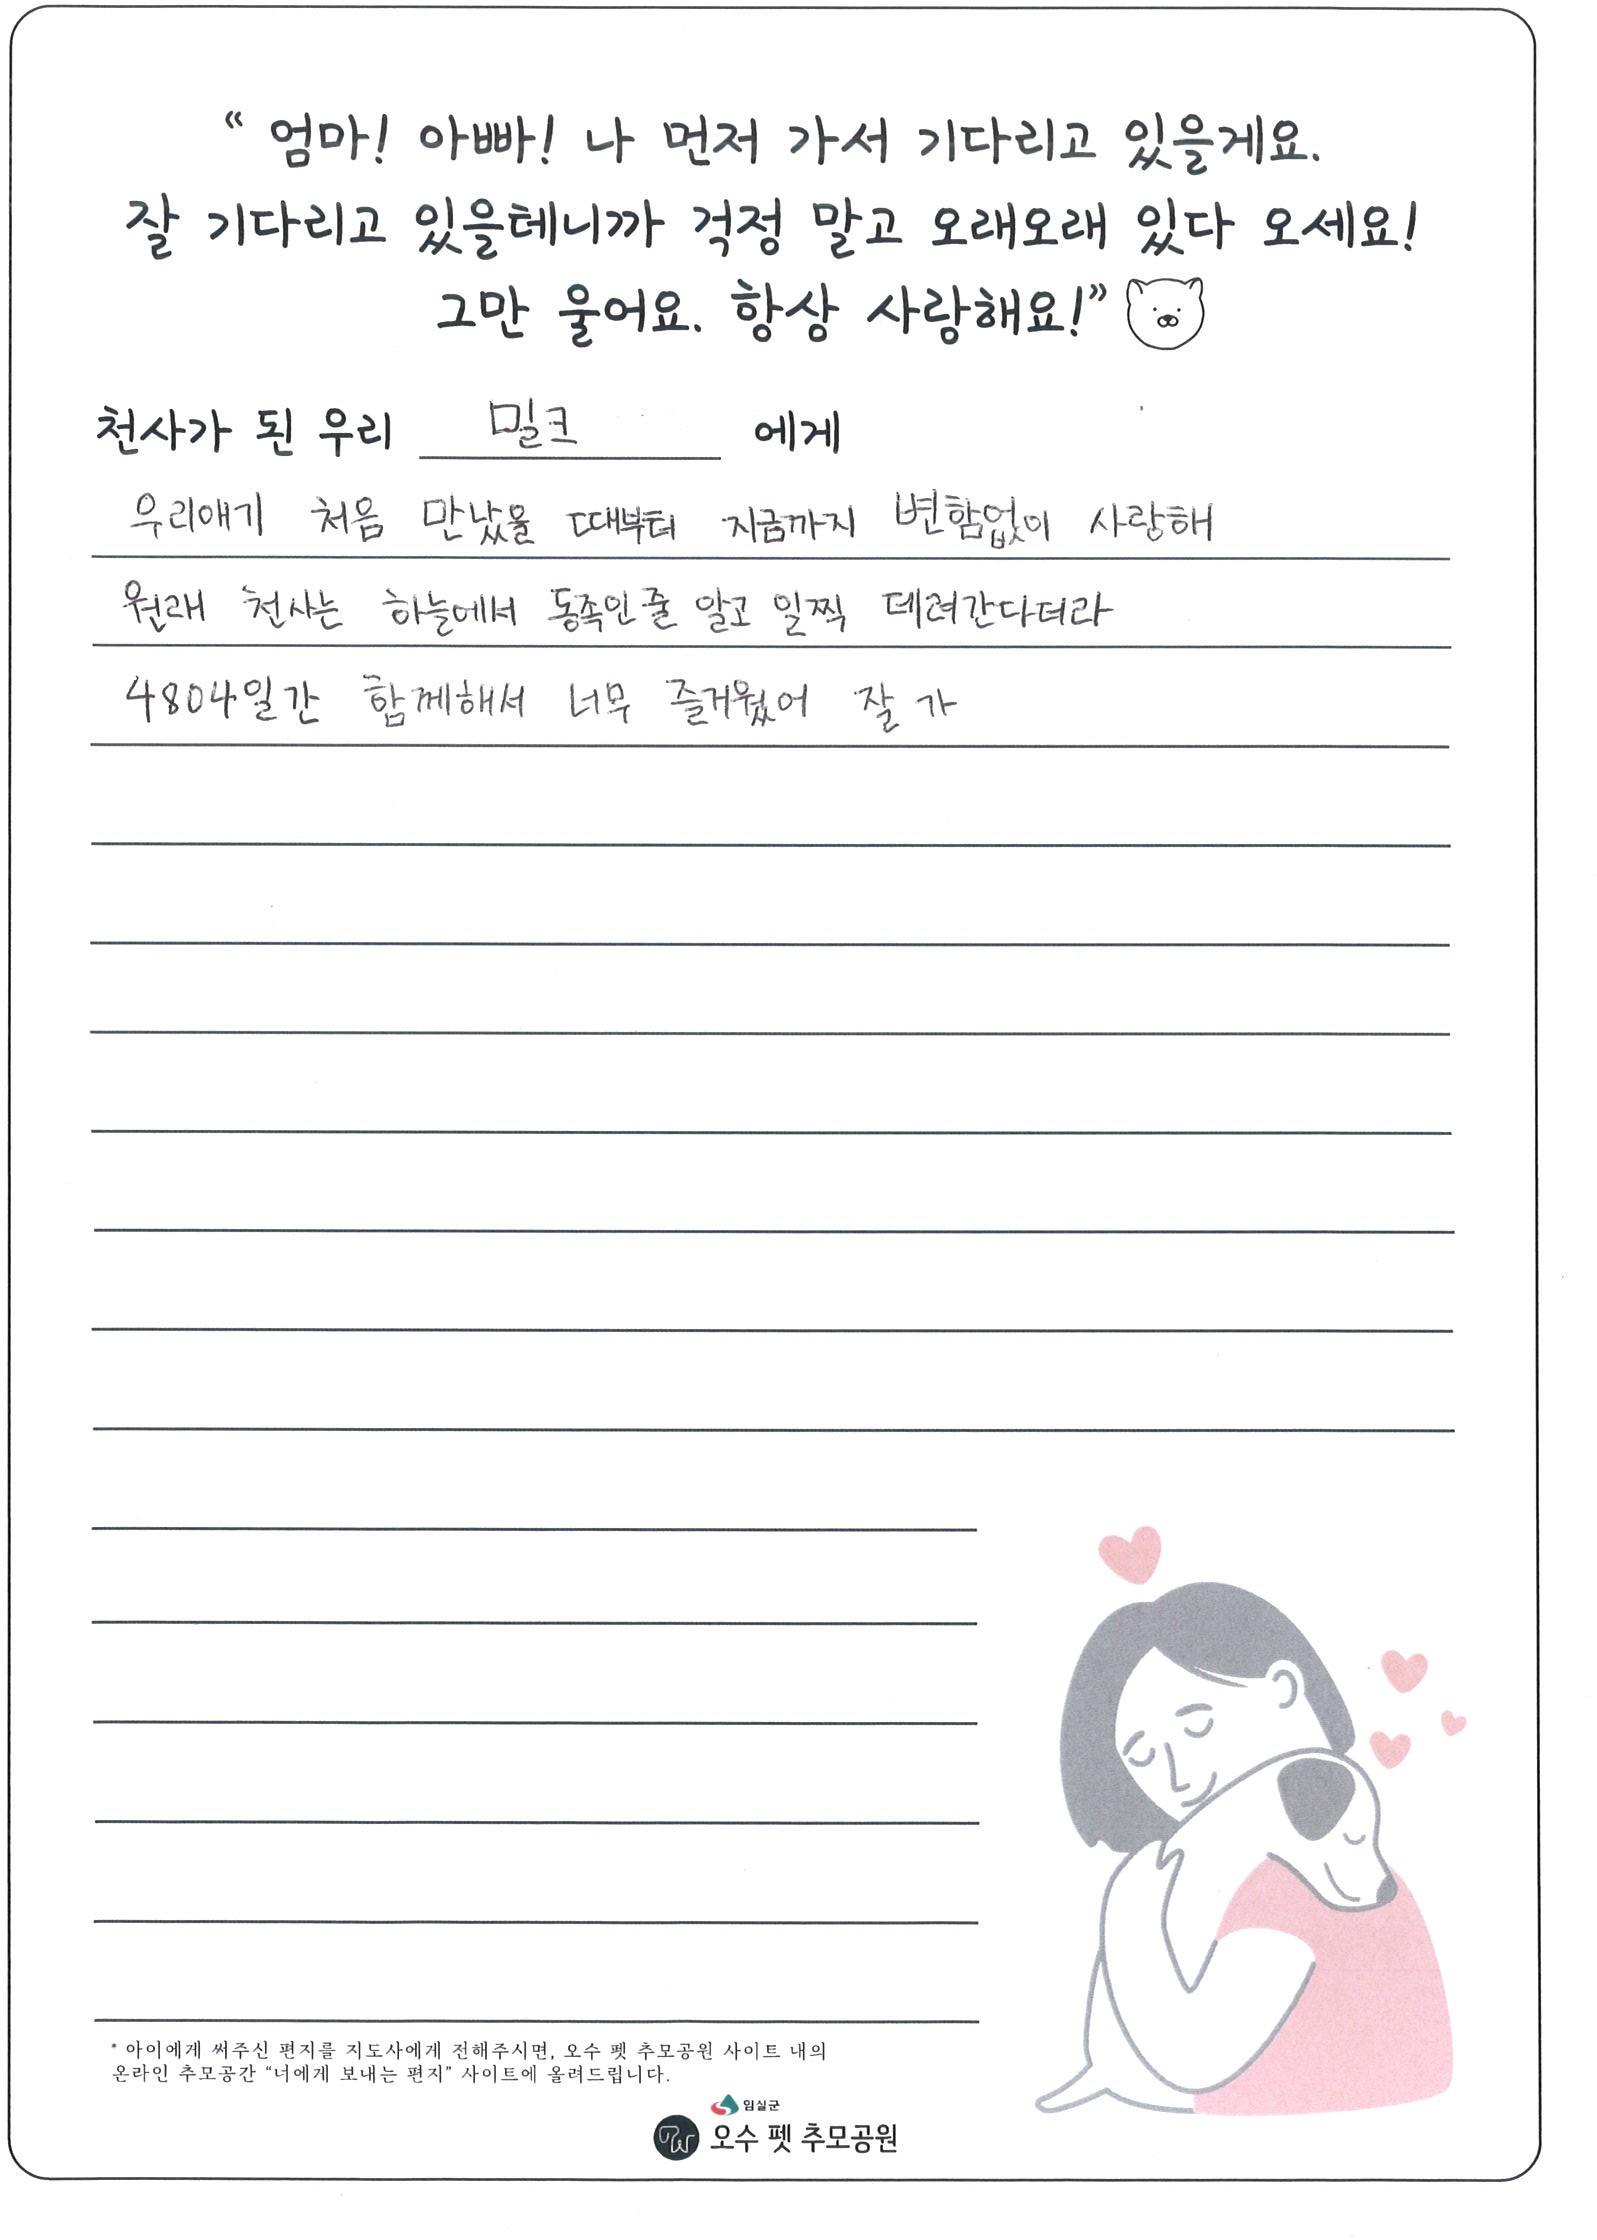 “ 엄마! 아빠! 나 먼저 가서 기다리고 있을게요.
잘 기다리고 있을테니까 걱정 말고 오래오래 있다 오세요!
그만 울어요. 항상 사랑해요!”
천사가 된 우리 밀크 에게
우리애기 처음 만났을 때부터 지금까지 변함없이 사랑해
원래 천사는 하늘에서 동족인줄 알고 일찍 데려간다더라
4804일간 함께해서 너무 즐거웠어 잘 가
* 아이에게 써주신 편지를 지도사에게 전해주시면, 오수 펫 추모공원 사이트 내의
온라인 추모공간 “너에게 보내는 편지” 사이트에 올려드립니다.
임실군
오수 펫 추모공원